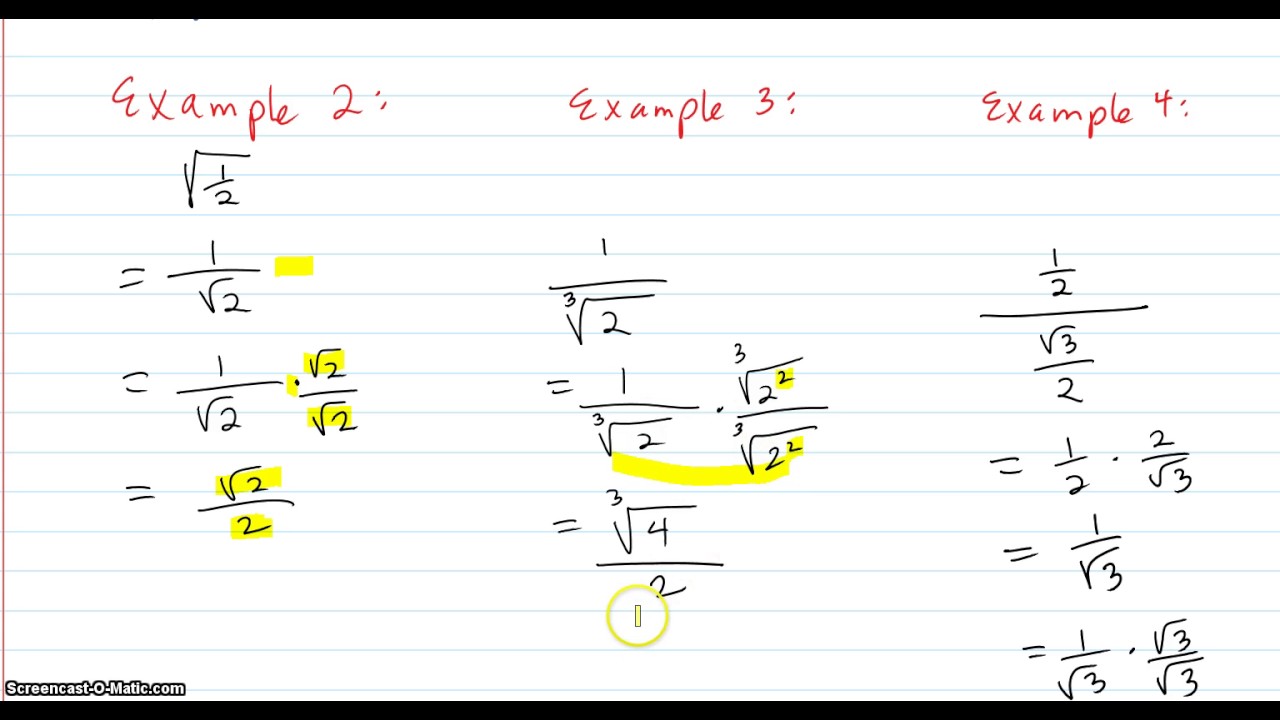 Example 2:
√(1/2)
= 1/√2
= 1/√2 · √2/√2
= √2/2
Example 3:
1/∛2
= 1/∛2 · ∛2²/∛2²
= ∛4/2
Example 4:
(1/2)/(√3/2)
= 1/2 · 2/√3
= 1/√3
= 1/√3 · √3/√3
Screencast-O-Matic.com